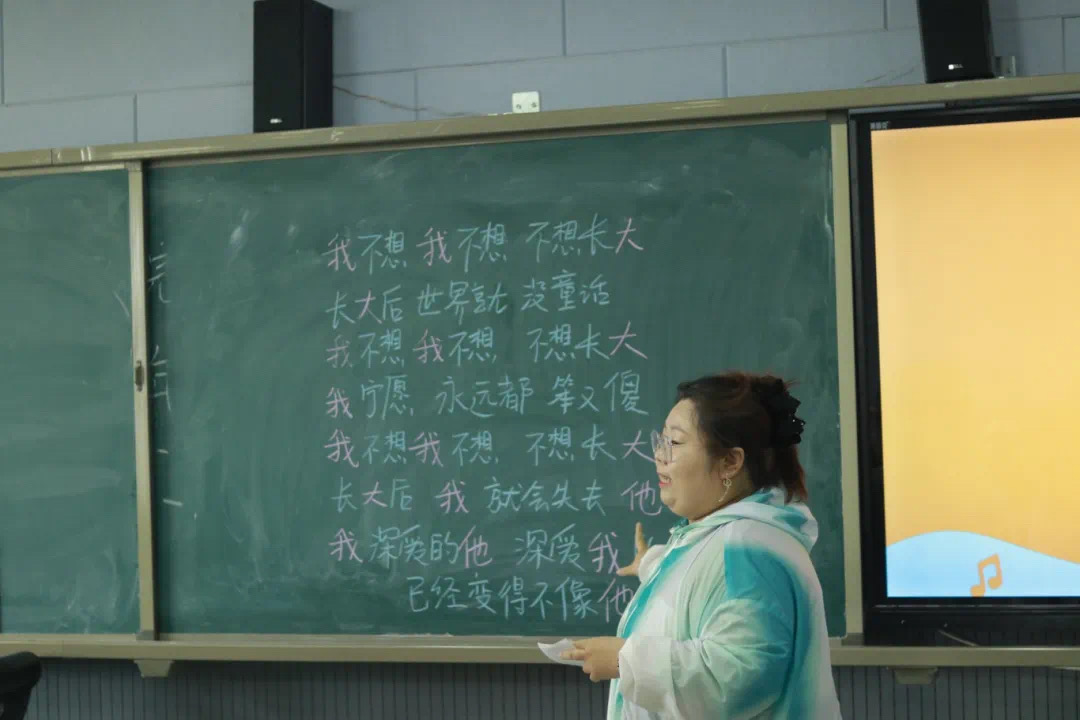 我不想 我不想 不想长大
长大后 世界就 没童话
我不想 我不想 不想长大
我宁愿 永远都 笨又傻
我不想 我不想 不想长大
长大后 我 就会失去 他
我深爱的他 深爱我
已经变得不像他